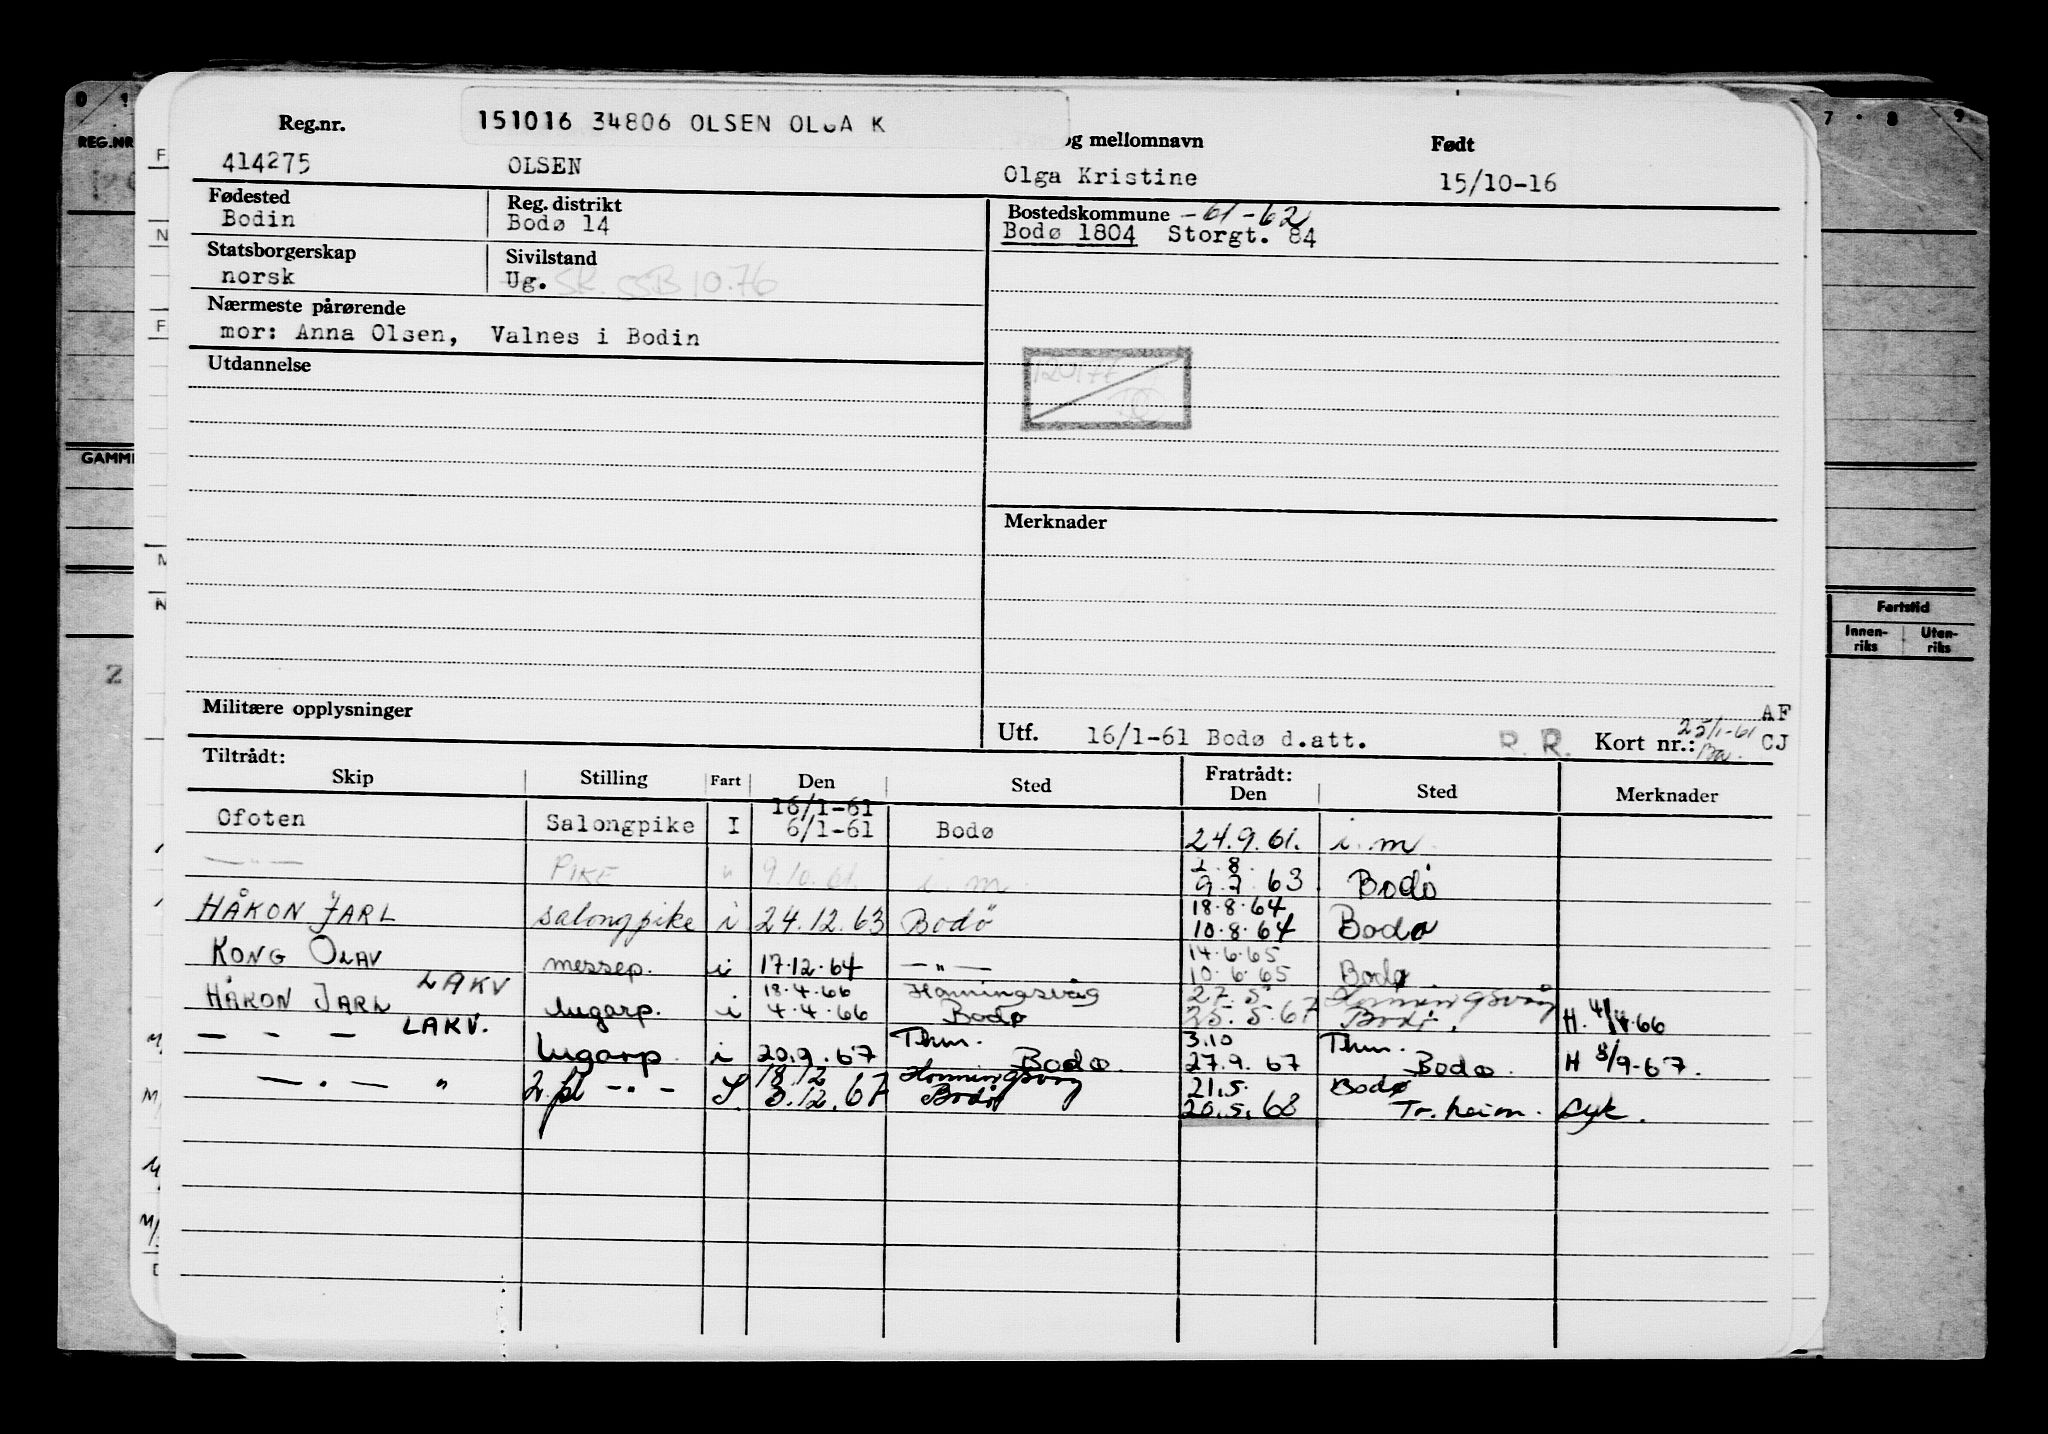 151016 34806 OLSEN OLGA K
Reg.nr. og mellomnavn Født
414275 OLSEN Olga Kristine 15/10-16
Fødested Reg. distrikt Bostedskommune -61-62
Bodin Bodø 14 Bodø 1804 Storgt. 84
Statsborgerskap Sivilstand
norsk Ug. SK. SSB 10.76
Nærmeste pårørende
mor: Anna Olsen, Valnes i Bodin
Utdannelse
Merknader
Militære opplysninger
AF
Utf. 16/1-61 Bodø d.att. R. R. Kort nr.: 25/1-61 CJ
Tiltrådt: Fratrådt:
Skip Stilling Fart Den Sted Den Sted Merknader
16/1-61
Ofoten Salongpike I 6/1-61 Bodø 24.9.61. i. m
— " — PIKE " 9.10.61. i. m 9.7.63. Bodø
18.8.64
HÅKON JARL salongpike i 24.12.63 Bodø 10.8.64 Bodø
14.6.65
KONG OLAV messep. i 17.12.64 — " — 10.6.65 Bodø
LAKV 18.4.66 Honningsvåg 27.5 Honningsvåg
HÅKON JARL lugarp. i 4.4.66 Bodø 25.5.67 Bodø. H. 4/4.66
LAKV. Thm. 3.10 Thm.
— — — lugarp i 20.9.67 Bodø. 27.9.67 Bodø. H 8/9.67.
18.12 Honningsvåg 21.5. Bodø
— . — " 2. pl — " — 3.12.67 Bodø 20.5.68 Tr.heim. syk.
REG.NR
GAMM
Fartstid
Innen-
riks
Uten-
riks